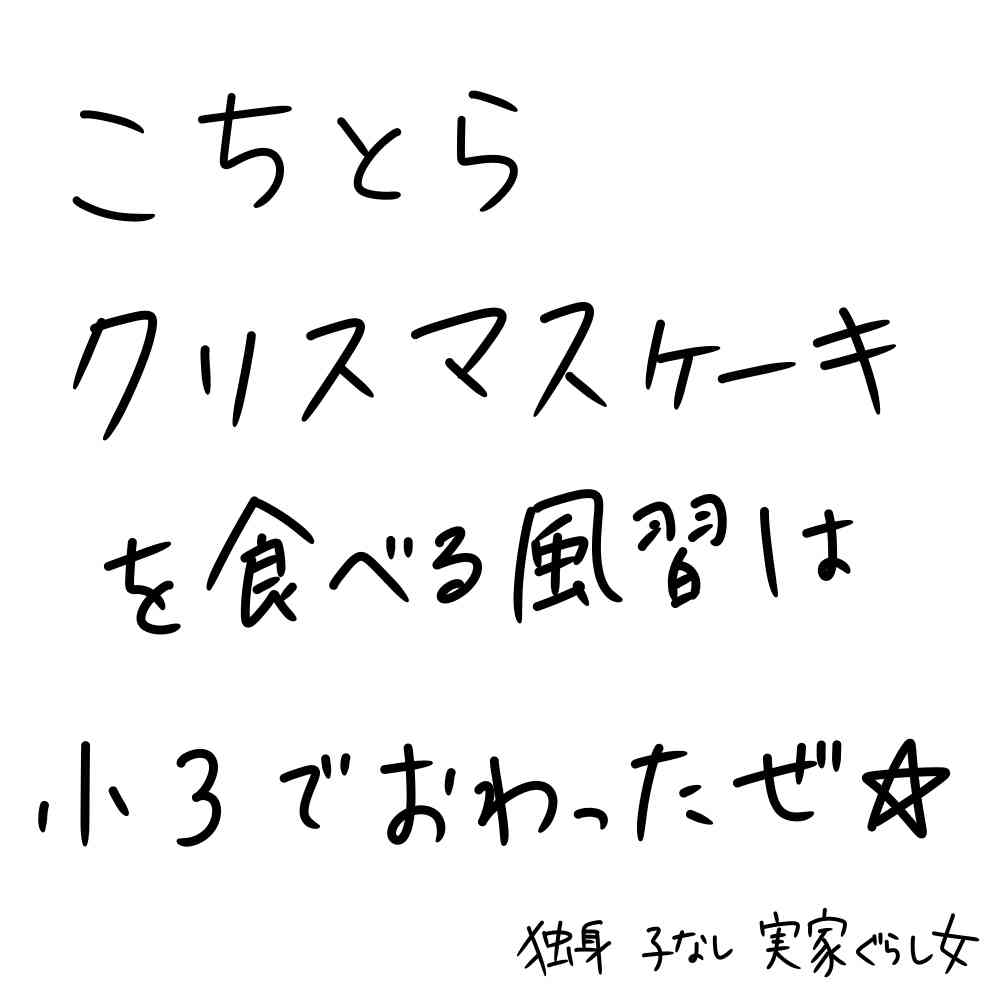 こちとら
クリスマスケーキ
を食べる風習は
小3でおわったぜ☆
独身 子なし 実家ぐらし女